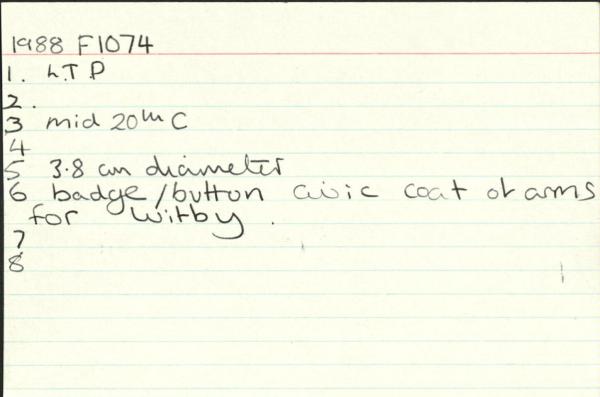 1988 F1074
1. L.T.P
2.
3 mid 20th C
4
5 3.8 cm diameter
6 badge/button civic coat of arms
for Witby.
7
8